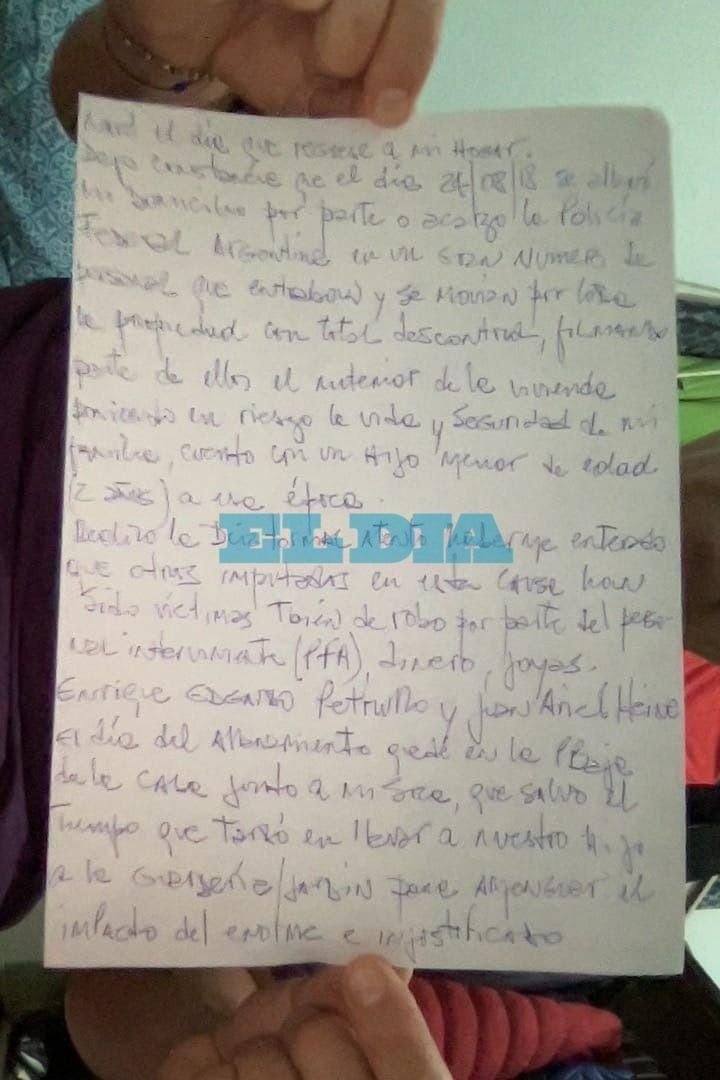 el día que regrese a mi Hogar.
Dejo constancia que el día 24/08/18 se allanó
mi Domicilio por parte o a cargo la Policía
Federal Argentina en un Gran Numero de
personal que entraban y se movian por toda
la propiedad con total descontrol, filmando
parte de ellos el interior de la vivienda
poniendo en riesgo la vida y Seguridad de mi
familia, cuento con un Hijo menor de edad
(2 años) a esa época.
Realizo la atento haberme enterado
que otros imputados en esta causa han
sido víctimas Tbién de robo por parte del perso
nal interviniente (PFA), dinero, joyas.
Enrique Petrullo y Juan Ariel Heine
El día del Allanamiento quedé en la P Baja
de la Casa junto a mi Sra, que salvo el
Tiempo que Tardó en llevar a nuestro hijo
a la Guardería/Jardín para el
impacto del enorme e injustificado
EL DIA